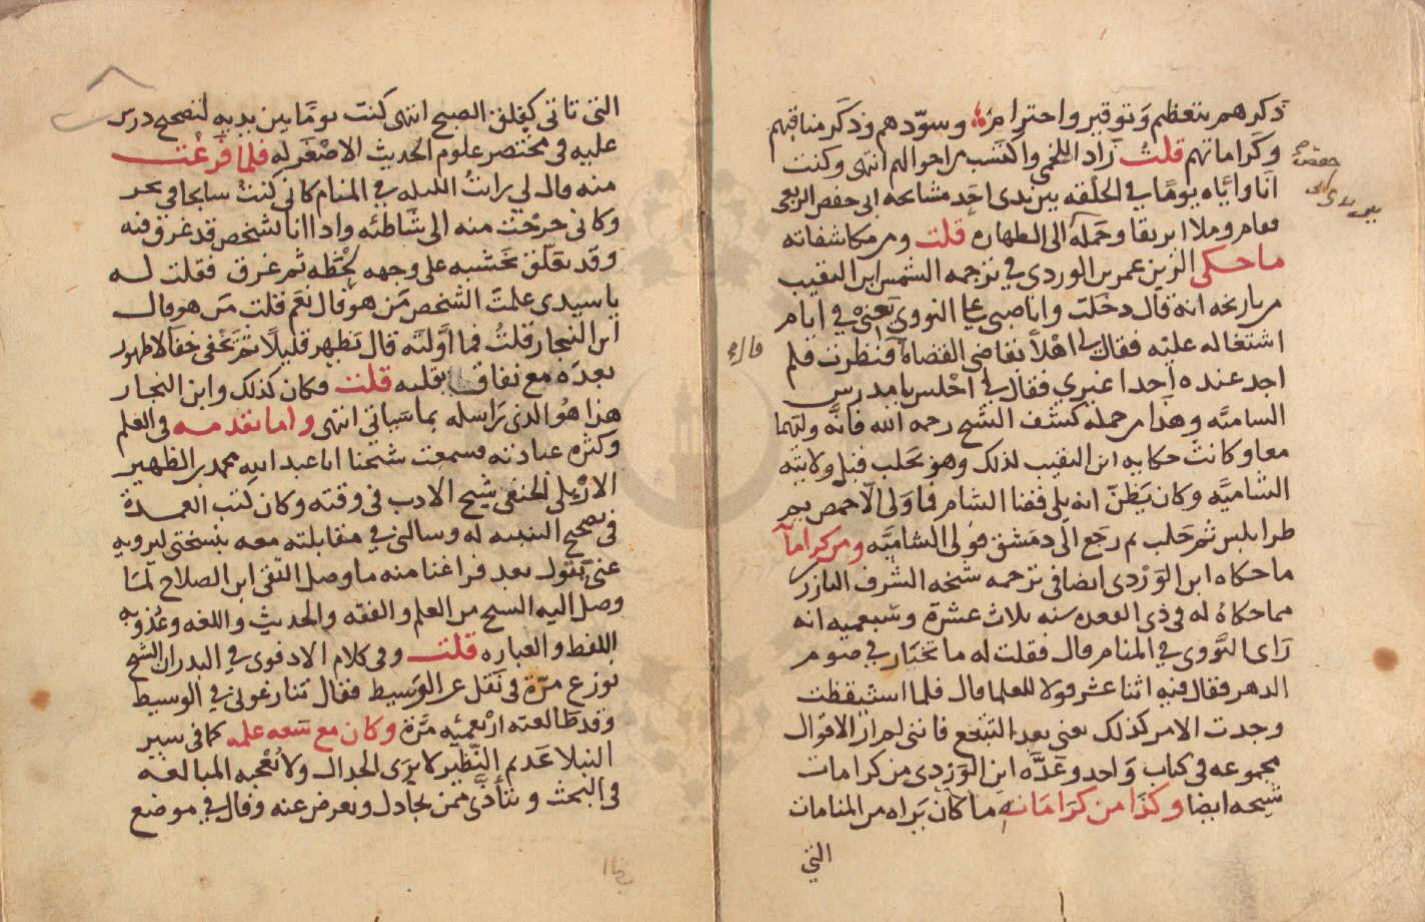 ذكرهم بتعظيم وتوقير واحترام وسودهم وذكر مناقبهم
وكراماتهم قلت زاد اللخمي واكتسب من احوالهم انتهى وكنت
انا واياه يوما في الحلقه بين يدى احد مشايخه ابى حفص الربعى
فقام وملا ابريقا وحمله الى الطهاره قلت ومن مكاشفاته
ما حكى الزين عمر بن الوردي في ترجمه الشمس ابن النقيب
من تاريخه انه قال دخلت وانا صبى على النووي يعنى في ايام
اشتغاله عليه فقال لى اهلا بقاضى القضاة فنظرت فلم
اجد عنده احدا غيري فقال لى اجلس يا مدرس
الشاميه وهذا من جملة كشف الشيخ رحمه الله فانه وليهما
معا وكانت حكايه ابن النقيب لذلك وهو بحلب قبل ولايته
الشاميه وكان يظن انه يلى قضا الشام فما ولى الا حمص ثم
طرابلس ثم حلب ثم رجع الى دمشق فولى الشاميه ومن كراماته
ما حكاه ابن الوردى ايضا في ترجمه شيخه الشرف البارزى
مما حكاه له فى ذى القعده سنه ثلاث عشرة وسبعميه انه
راى النووى في المنام قال فقلت له ما تختار في صوم
الدهر فقال فيه اثنا عشر قولا للعلما قال فلما استيقظت
وجدت الامر كذلك يعنى بعد التتبع فاننى لم ار الاقوال
مجموعه فى كتاب واحد وعده ابن الوردى من كرامات
شيخه ايضا وكذا من كراماته ما كان يراه من المنامات
التي
حفصه
بين يدى
قال لى
التى تاتى كفلق الصبح انتهى كنت يوما بين يديه لتصحيح درس
عليه فى مختصر علوم الحديث الاصغر له فلما فرغت
منه قال لي رايت الليله في المنام كانى كنت سابحا في بحر
وكانى خرجت منه الى شاطئه واذا انا بشخص قد غرق فيه
وقد تعلق بخشبه على وجهه لحظه ثم غرق فقلت له
يا سيدى علمت الشخص من هو قال نعم قلت من هو قال
ابن النجار قلت فما اولته قال يظهر قليلا ثم يخفى خفا لا ظهور
بعده مع نفاق بقلبه قلت فكان كذلك وابن النجار
هذا هو الذى راسله بما سياتي انتهى واما تقدمه فى العلم
وكثره عبادته فسمعت شيخنا ابا عبد الله محمد بن الظهير
الاربلى الحنفى شيخ الادب فى وقته وكان كتب العمدة
فى تصحيح التنبيه له وسالنى في مقابلته معه بنسختى ليرويه
عنى يقول بعد فراغنا منه ما وصل التقى ابن الصلاح لما
وصل اليه الشيخ من العلم والفقه والحديث واللغه وعذوبه
اللفظ والعباره قلت وفى كلام الادفوى في البدر ان الشيخ
نوزع مرة فى نقل عن الوسيط فقال تنازعونى في الوسيط
وقد طالعته اربعميه مرة وكان مع سعه علمه كما فى سير
النبلا عديم النظير لا يرى الجدال ولا تعجبه المبالغه
فى البحث ويتأذى ممن يجادل ويعرض عنه وقال في موضع